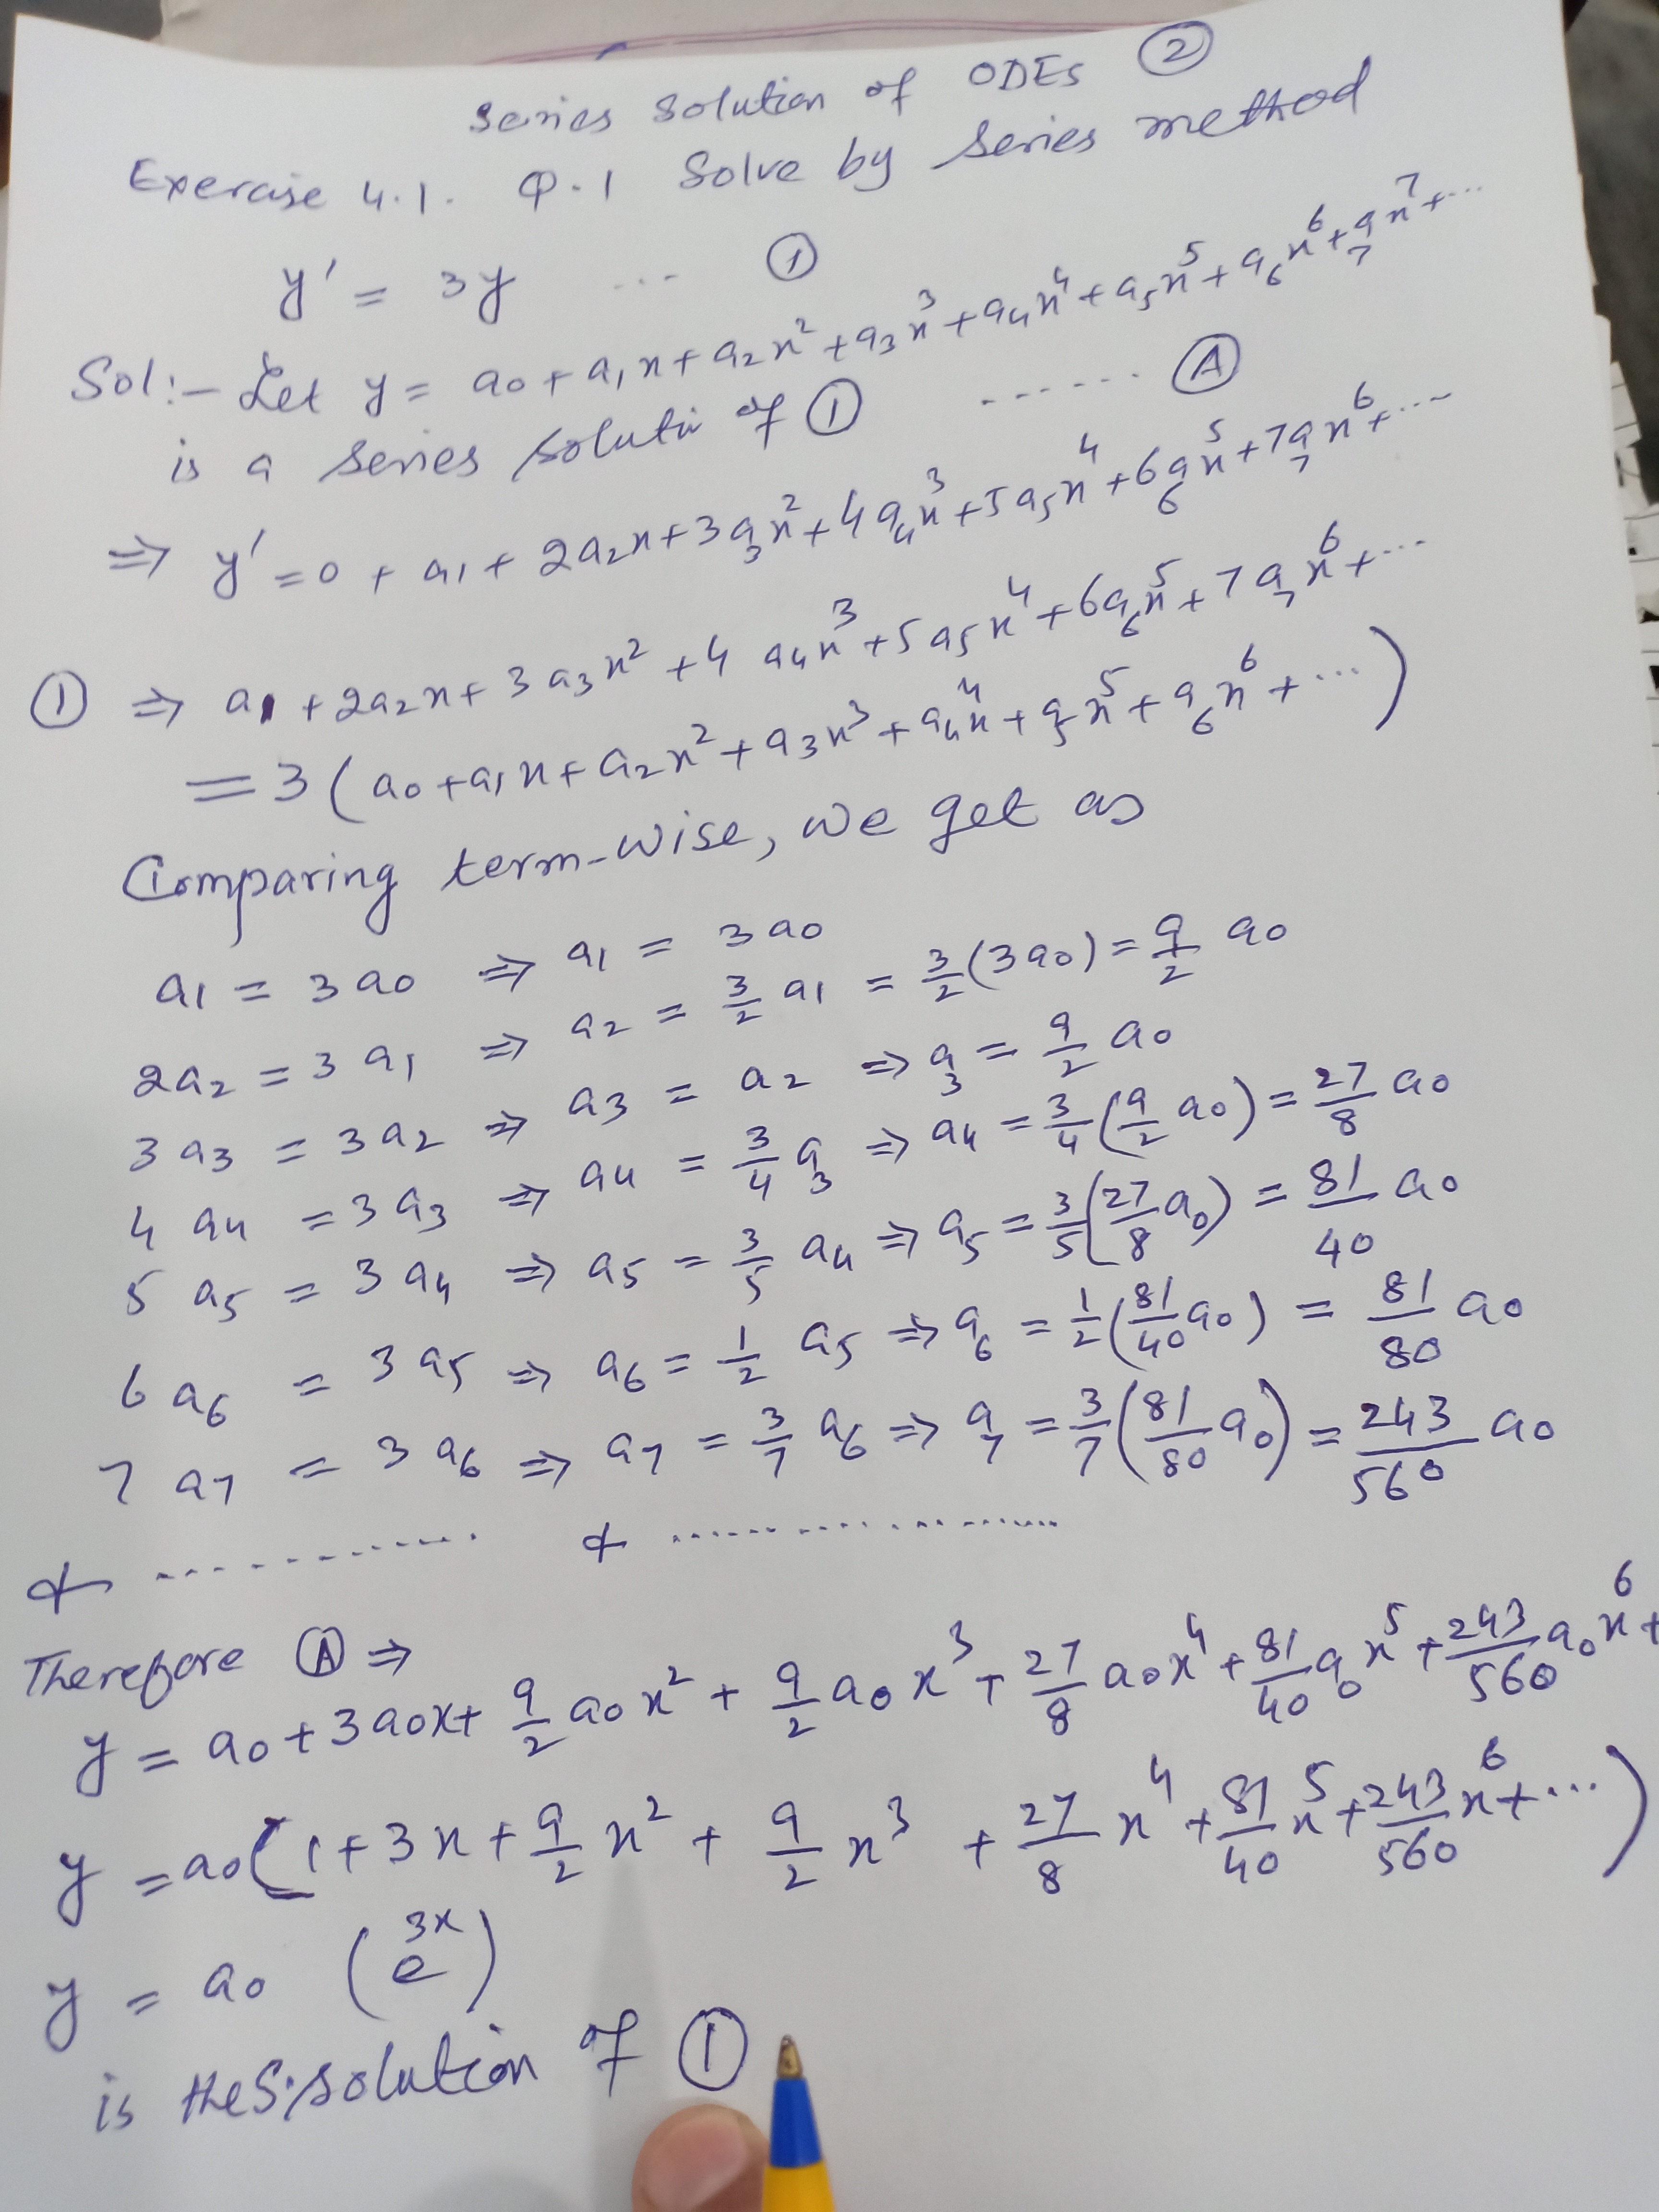 Series Solution of ODEs ②
Exercise 4.1. Q.1 Solve by Series method
y' = 3y ... ①
Sol:- Let y = a₀ + a₁x + a₂x² + a₃x³ + a₄x⁴ + a₅x⁵ + a₆x⁶ + a₇x⁷ + ...
is a series solutin of ① ...... Ⓐ
⇒ y' = 0 + a₁ + 2a₂x + 3a₃x² + 4a₄x³ + 5a₅x⁴ + 6a₆x⁵ + 7a₇x⁶ + ...
① ⇒ a₁ + 2a₂x + 3a₃x² + 4a₄x³ + 5a₅x⁴ + 6a₆x⁵ + 7a₇x⁶ + ...
= 3(a₀ + a₁x + a₂x² + a₃x³ + a₄x⁴ + a₅x⁵ + a₆x⁶ + ...)
Comparing term-wise, we get as
a₁ = 3a₀ ⇒ a₁ = 3a₀
2a₂ = 3a₁ ⇒ a₂ = 3/2 a₁ = 3/2 (3a₀) = 9/2 a₀
3a₃ = 3a₂ ⇒ a₃ = a₂ ⇒ a₃ = 9/2 a₀
4a₄ = 3a₃ ⇒ a₄ = 3/4 a₃ ⇒ a₄ = 3/4 (9/2 a₀) = 27/8 a₀
5a₅ = 3a₄ ⇒ a₅ = 3/5 a₄ ⇒ a₅ = 3/5 (27/8 a₀) = 81/40 a₀
6a₆ = 3a₅ ⇒ a₆ = 1/2 a₅ ⇒ a₆ = 1/2 (81/40 a₀) = 81/80 a₀
7a₇ = 3a₆ ⇒ a₇ = 3/7 a₆ ⇒ a₇ = 3/7 (81/80 a₀) = 243/560 a₀
& .............. & ..................
Therefore Ⓐ ⇒
y = a₀ + 3a₀x + 9/2 a₀x² + 9/2 a₀x³ + 27/8 a₀x⁴ + 81/40 a₀x⁵ + 243/560 a₀x⁶ +
y = a₀(1 + 3x + 9/2 x² + 9/2 x³ + 27/8 x⁴ + 81/40 x⁵ + 243/560 x⁶ + ...)
y = a₀ (e³ˣ)
is the S.solution of ①